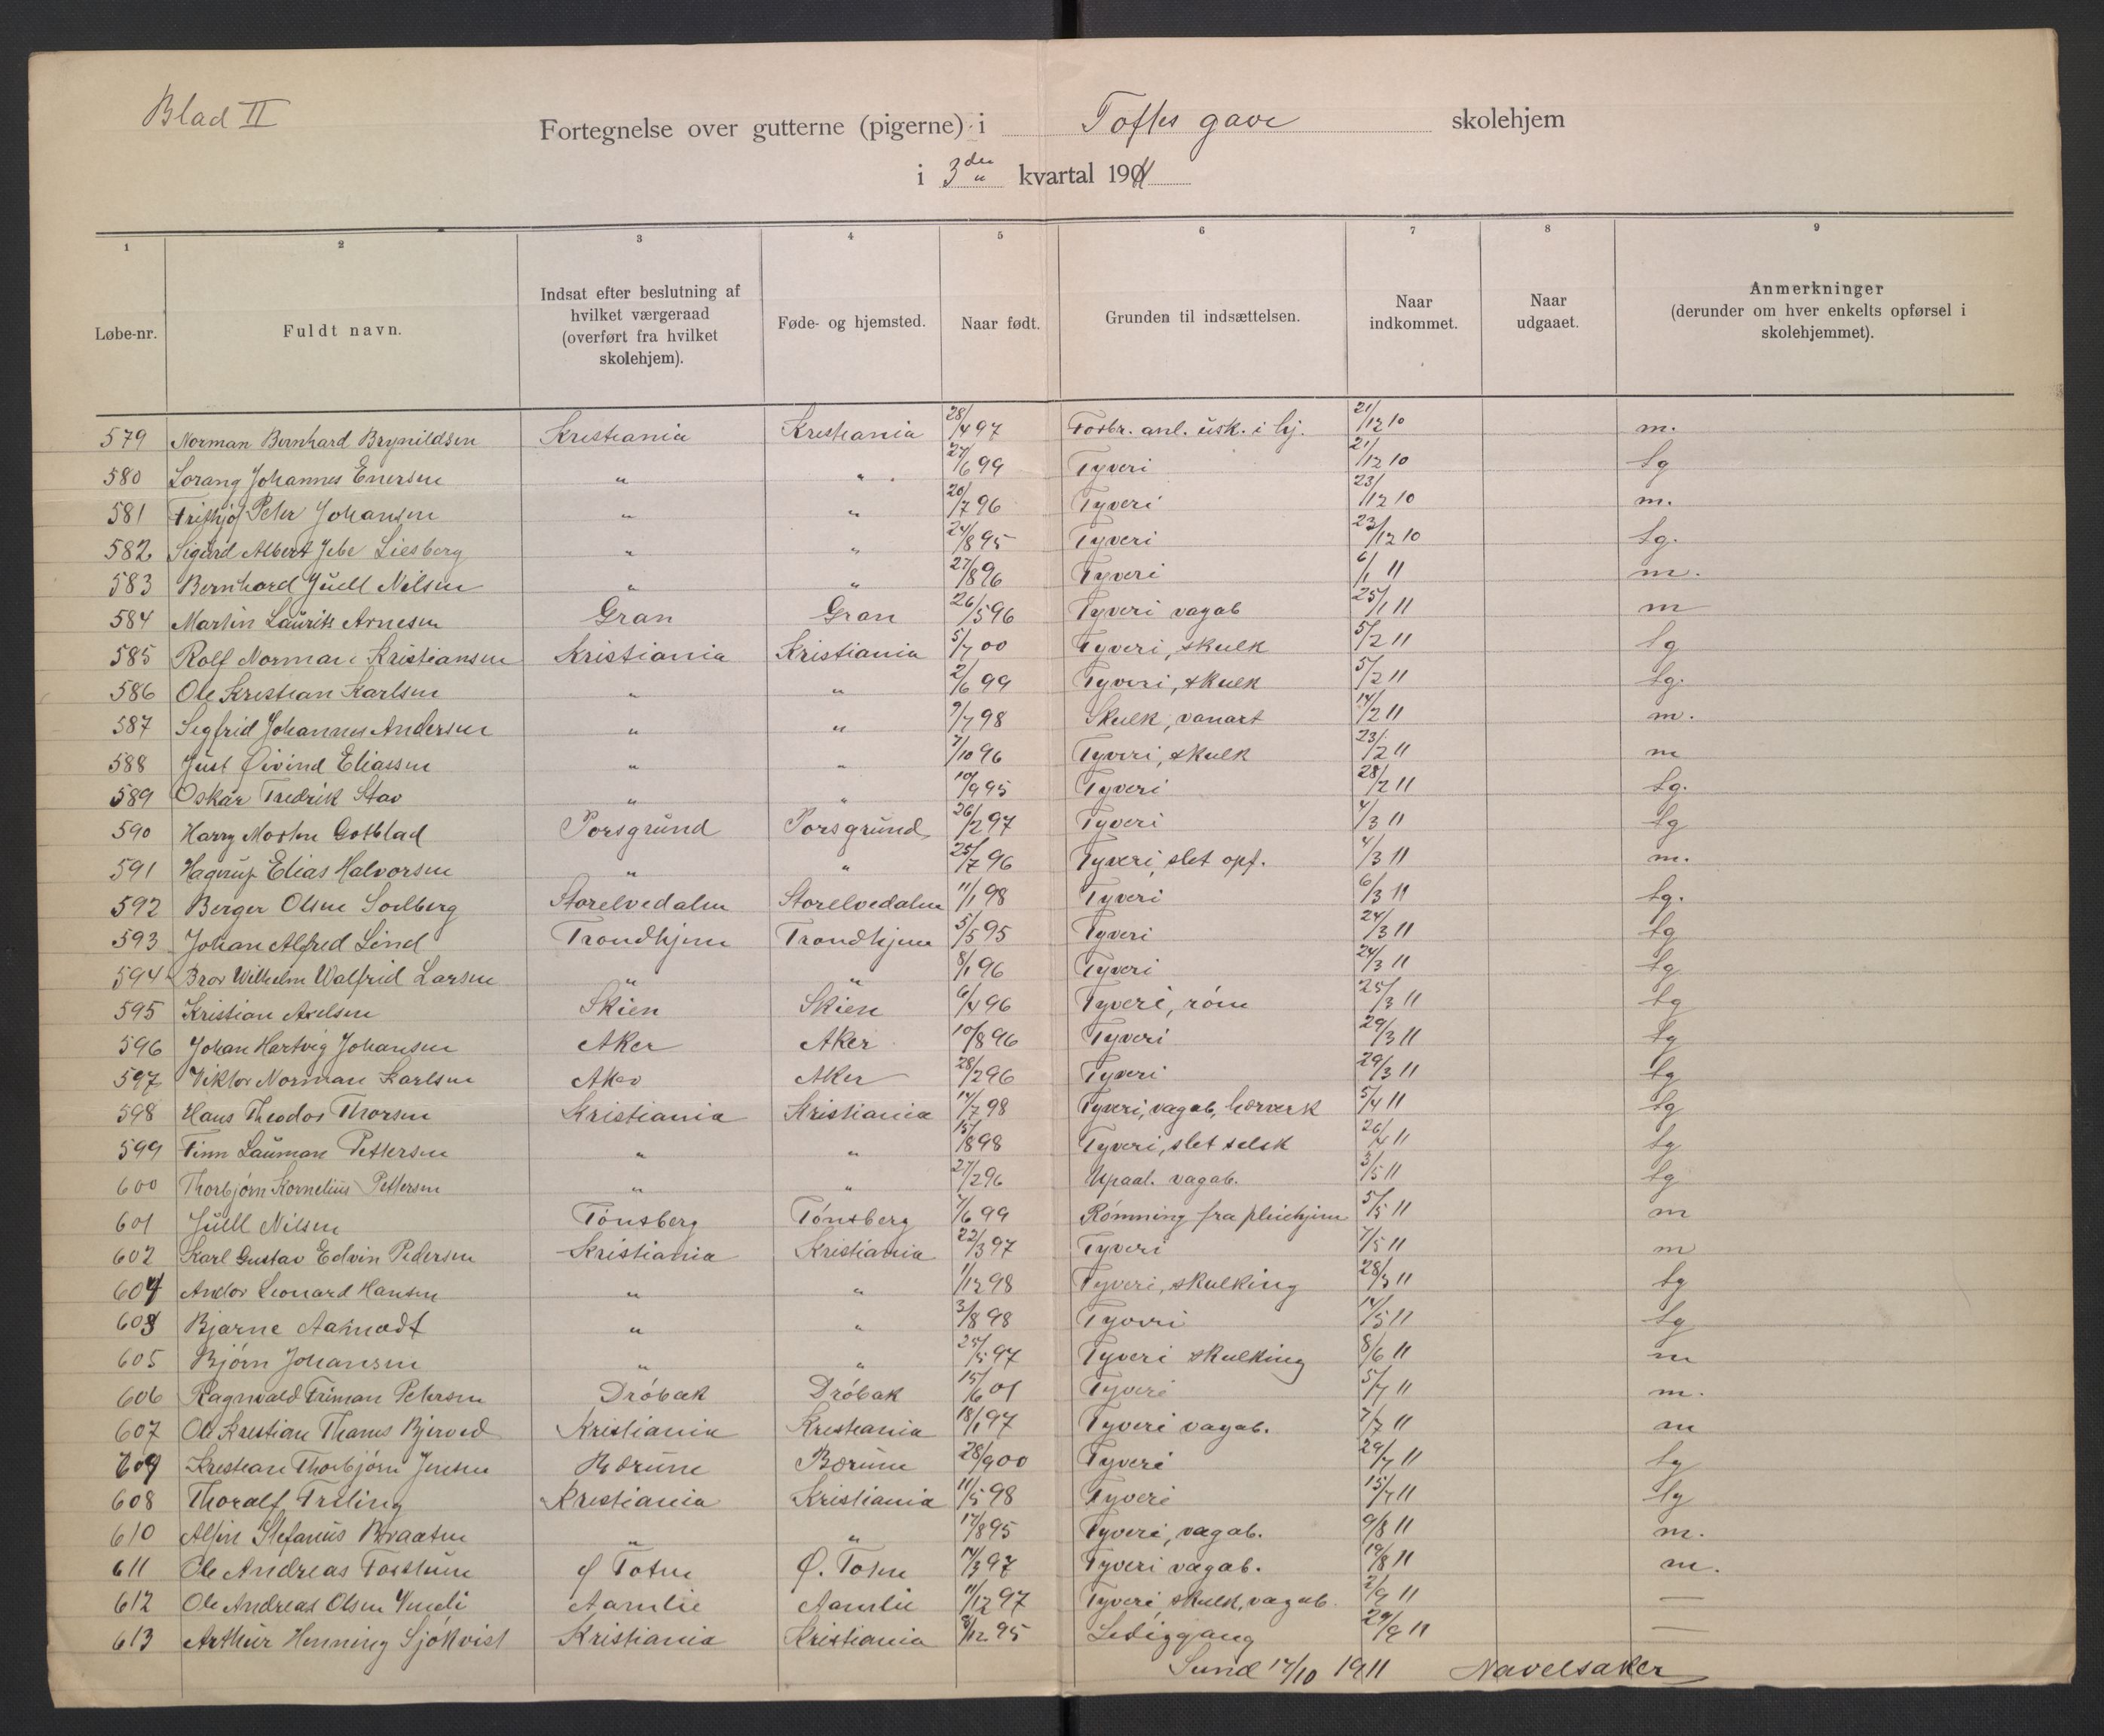 Blad II
Fortegnelse over gutterne (pigerne) i Toftes gave skolehjem
i 3die kvartal 1911
1 2 3 4 5 6 7 8 9
Løbe-nr. Fuldt navn. Indsat efter beslutning af hvilket værgeraad (overført fra hvilket skolehjem). Føde- og hjemsted. Naar født. Grunden til indsættelsen. Naar indkommet. Naar udgaaet. Anmerkninger (derunder om hver enkelts opførsel i skolehjemmet).
579 Norman Bernhard Brynildsen Kristiania Kristiania 28/4 97 Forbr. anl. usk. i hj. 21/12 10 m.
580 Lorang Johannes Enersen " " 27/6 99 Tyveri 21/12 10 tg
581 Fritjhjof Peter Johansen " " 20/7 96 Tyveri 23/12 10 m.
582 Sigurd Albert Jebe Liesberg " " 24/8 95 Tyveri 23/12 10 tg.
583 Bernhard Juell Nilsen " " 27/8 96 Tyveri 6/1 11 m.
584 Martin Laurits Arnesen Gran Gran 26/5 96 Tyveri vagab 25/1 11 m
585 Rolf Norman Kristiansen Kristiania Kristiania 5/7 00 Tyveri, skulk 5/2 11 tg
586 Ole Kristian Karlsen " " 2/6 99 Tyveri, skulk 5/2 11 tg.
587 Sigfrid Johannes Andersen " " 9/7 98 Skulk, vanart 14/2 11 m.
588 Just Øivind Eliassen " " 7/10 96 Tyveri, skulk 23/2 11 m
589 Oskar Fredrik Stav " " 10/9 95 Tyveri 28/2 11 tg.
590 Harry Morten Gotblad Porsgrund Porsgrund 26/2 97 Tyveri 4/3 11 tg
591 Hagrup Elias Halvorsen " " 25/7 96 Tyveri, slet opf. 4/3 11 m.
592 Berger Olsen Solberg Storelvedalen Storelvedalen 11/1 98 Tyveri 6/3 11 tg.
593 Johan Alfred Lind Trondhjem Trondhjem 5/5 95 Tyveri 24/3 11 tg
594 Bror Wilhelm Walfrid Larsen " " 8/1 96 Tyveri 24/3 11 tg
595 Kristian Axelsen Skien Skien 6/4 96 Tyveri, röm 25/3 11 tg
596 Johan Hartvig Johansen Aker Aker 10/8 96 Tyveri 29/3 11 tg
597 Viktor Norman Karlsen Aker Aker 28/2 96 Tyveri 29/3 11 tg
598 Hans Theodor Thorsen Kristiania Kristiania 14/7 98 Tyveri, vagab, hærverk 5/4 11 tg
599 Finn Lauman Pettersen " " 15/8 98 Tyveri, slet selsk 26/4 11 tg
600 Thorbjørn Kornelius Pettersen " " 27/2 96 Upaal. vagab. 3/5 11 tg
601 Juell Nilsen Tönsberg Tönsberg 7/6 99 Römning fra pleiehjem 5/5 11 m
602 Karl Gustav Edvin Pedersen Kristiania Kristiania 22/3 97 Tyveri 7/5 11 m
604 Andor Leonard Hansen " " 1/12 98 Tyveri, skulking 28/5 11 tg
603 Bjarne Aamodt " " 3/8 98 Tyveri 14/5 11 tg
605 Björn Johansen " " 25/5 97 Tyveri skulking 8/6 11 m
606 Ragnvald Friman Petersen Dröbak Dröbak 15/6 01 Tyveri 5/7 11 m.
607 Ole Kristian Thams Bjerved Kristiania Kristiania 18/1 97 Tyveri vagab. 7/7 11 m
609 Kristian Thorbjørn Jensen Bærum Bærum 28/9 00 Tyveri 29/7 11 tg
608 Thoralf Friling Kristiania Kristiania 11/5 98 Tyveri 15/7 11 tg
610 Alfin Stefanius Braaten " " 17/8 95 Tyveri, vagab. 9/8 11 m.
611 Ole Andreas Fossum Ø Toten Ø. Toten 14/3 97 Tyveri vagab. 19/8 11 m.
612 Ole Andreas Olsen Aamlie Aamlie 11/12 97 Tyveri, skulk, vagab. 2/9 11 —
613 Arthur Henning Sjökvist Kristiania Kristiania 8/12 95 Lediggang 29/9 11 —
Sund 17/10 1911 Navelsaker